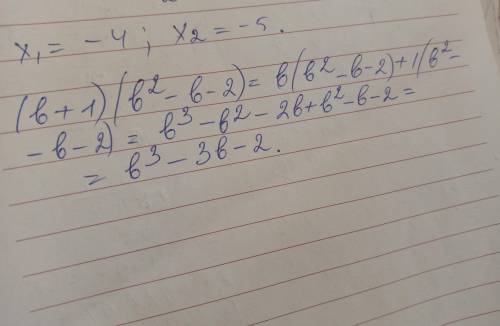 x₁ = -4; x₂ = -5.
(b+1)(b²-b-2) = b(b²-b-2)+1(b²-
-b-2) = b³-b²-2b+b²-b-2=
= b³-3b-2.